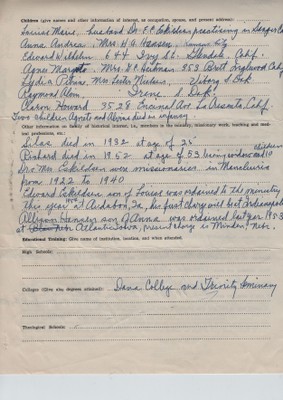 Children (give names and other information of interest, as occupation, spouse, and present address):
Louise Marie, husband Dr. E.C. Eskildsen practising in
Anna Andrea, Mrs. H.A. Hansen, Kansas City
Edward Wilhelm 644 Ivy St. Glendale, Calif.
Agnes Mrs. Calif
Lydia Mrs. Lester
Raymond Irene S. Dak
Aaron Howard 3528 Encinal Ave. La Crescenta Calif.
Two children Agnete and died in infancy
Other information on family of historical interest, i.e., members in the ministry, missionary work, teaching and medical profession, etc.:
Silas died in 1932 at age of 25
Richard died in 1952 at age of 53 and 10 children
Dr. & Mrs Eskildsen were missionaries in Manchuria
from 1922 to 1940
Edward Eskildsen son of Louise was ordained to the ministry
this year 1954 at Audubon, Ia, his first charge will be at Indianapolis
Allison Hansen son of Anna was ordained last year 1953
at Atlantic Iowa, present charge is Minden, Nebr.
Educational Training: Give name of institution, location, and when attended.
High Schools:
Colleges (Give also degrees attained): Dana College and Trinity Seminary
Theological Schools: